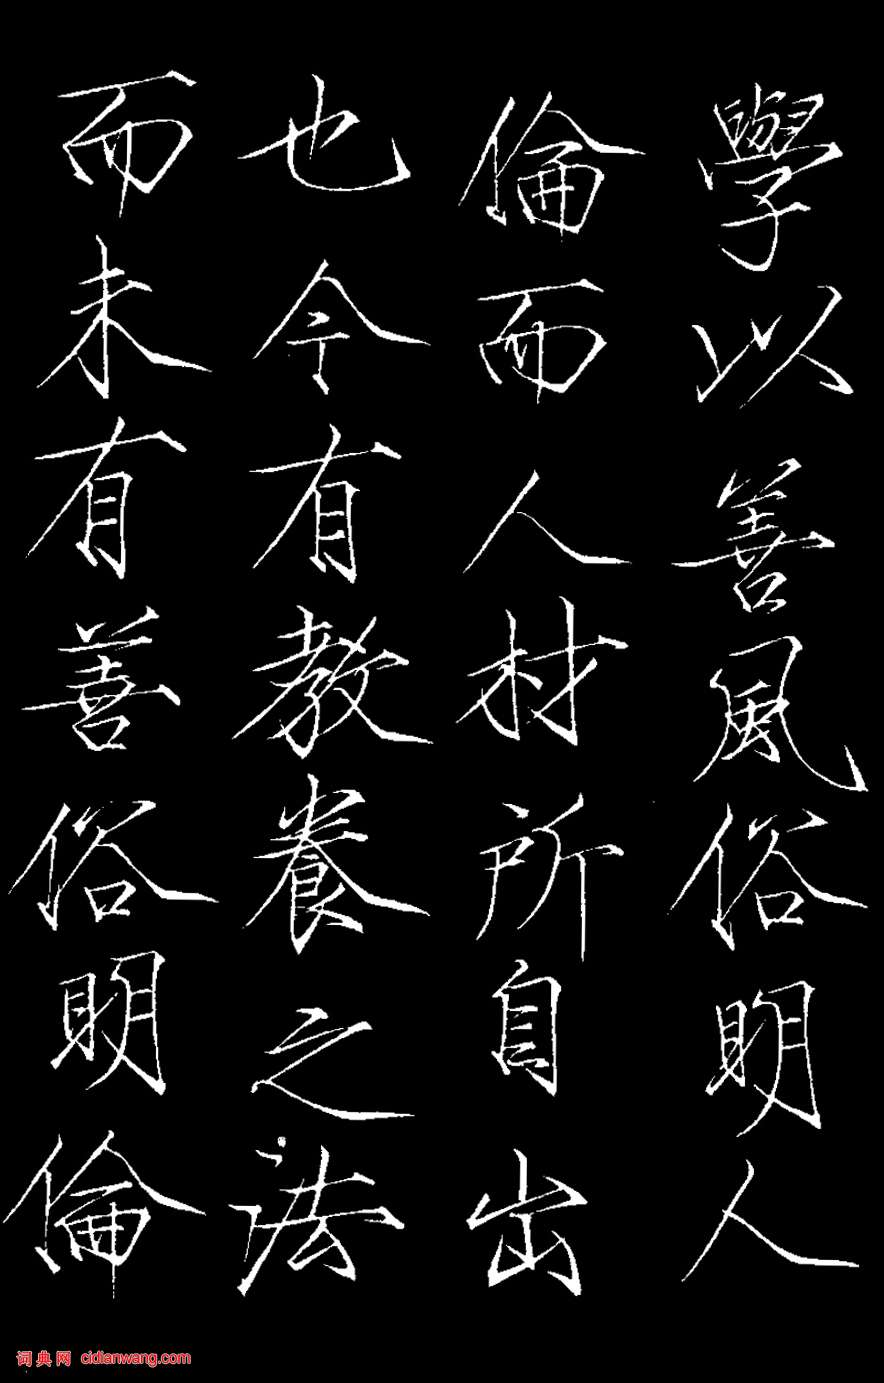 學以善風俗明人
倫而人材所自出
也今有教養之法
而未有善俗明倫
词典网 cidianwang.com